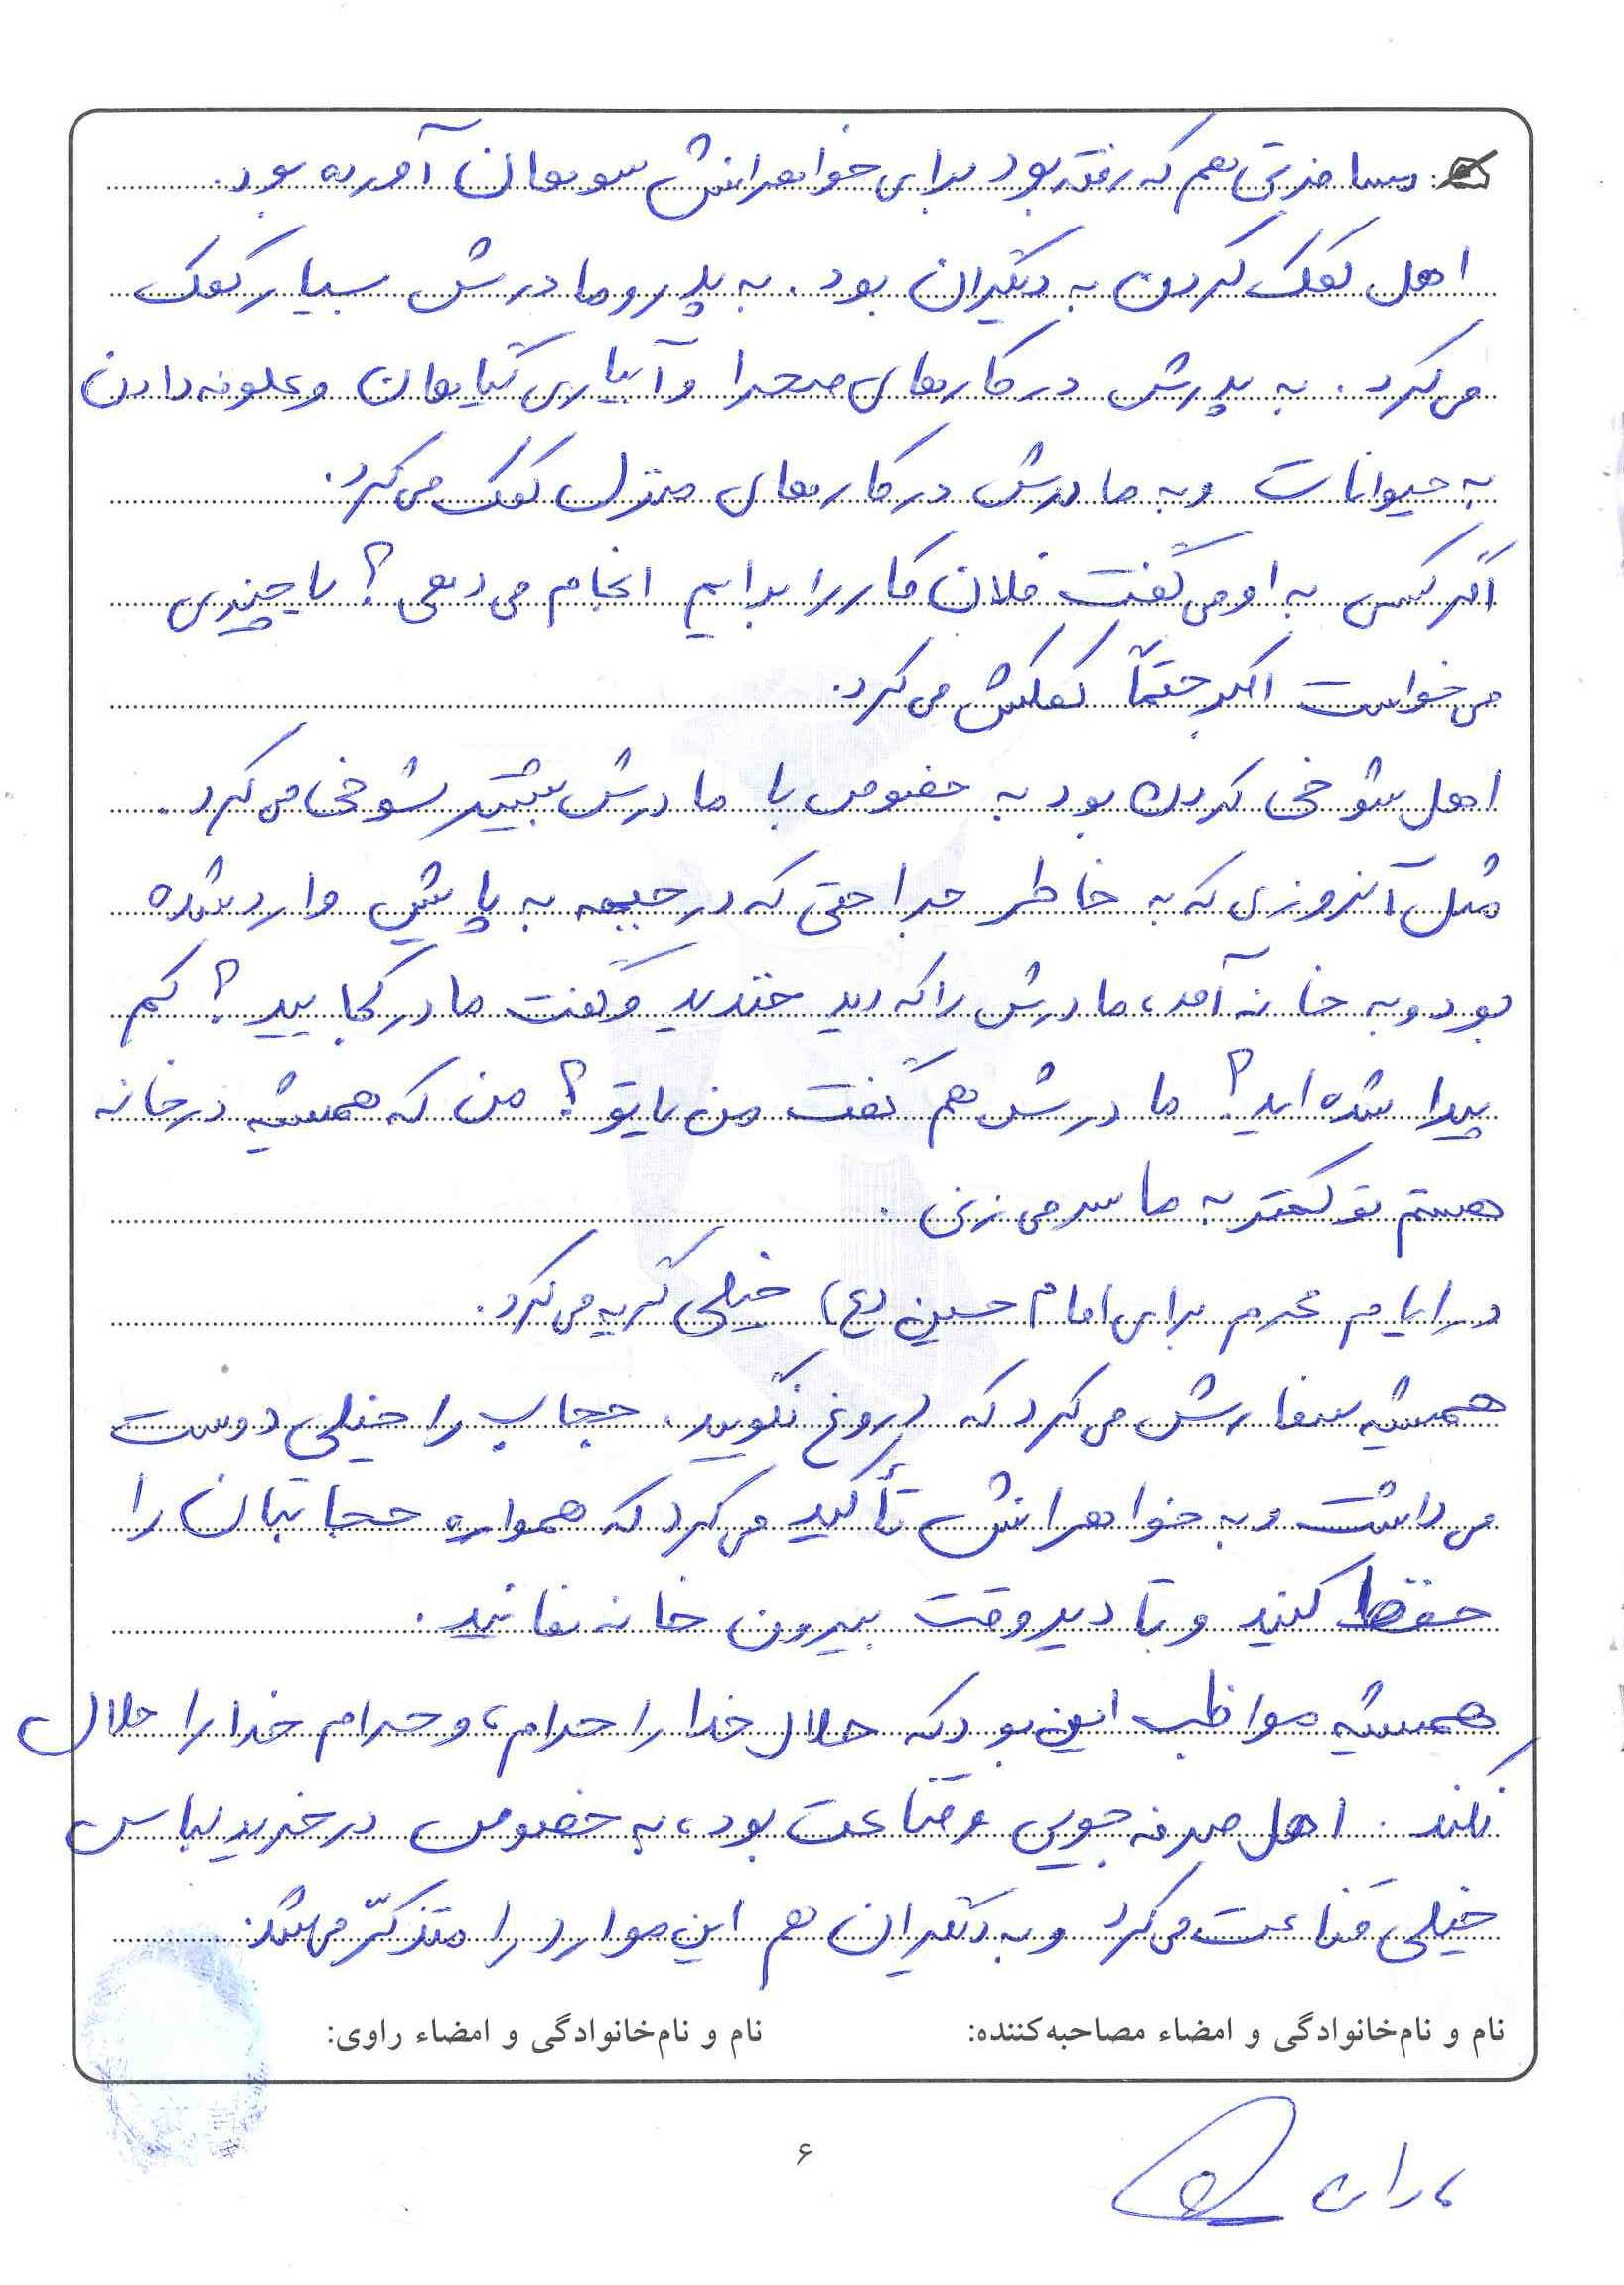 مسافرتی هم که رفته بود برای خواهرانش سوهان آورده بود.
اهل کمک کردن به دیگران بود. به پدر و مادرش بسیار کمک
می‌کرد. به پدرش در کارهای صحرا و آبیاری گیاهان و علوفه دادن
به حیوانات و به مادرش در کارهای منزل کمک می‌کرد.
اگر کسی به او می‌گفت فلان کار را برایم انجام می‌دهی؟ یا چیزی
می‌خواست اکبر حتماً کمکش می‌کرد.
اهل شوخی کردن بود به خصوص با مادرش بیشتر شوخی می‌کرد.
مثل آنروزی که به خاطر جراحتی که در جبهه به پایش وارد شده
بود و به خانه آمد، مادرش را که دید خندید و گفت مادر کجایید؟ کم
پیدا شده‌اید؟ مادرش هم گفت من یا تو؟ من که همیشه در خانه
هستم تو کمتر به ما سر می‌زنی.
در ایام محرم برای امام حسین (ع) خیلی گریه می‌کرد.
همیشه سفارش می‌کرد که دروغ نگویید. حجاب را خیلی دوست
می‌داشت و به خواهرانش تأکید می‌کرد که همواره حجابتان را
حفظ کنید و تا دیر وقت بیرون خانه نمانید.
همیشه مواظب این بود که حلال خدا را حرام، و حرام خدا را حلال
نکند. اهل صرفه‌جویی و قناعت بود، به خصوص در خرید لباس
خیلی قناعت می‌کرد و به دیگران هم این موارد را متذکّر می‌شد.
نام و نام‌خانوادگی و امضاء مصاحبه‌کننده: نام و نام‌خانوادگی و امضاء راوی:
۶